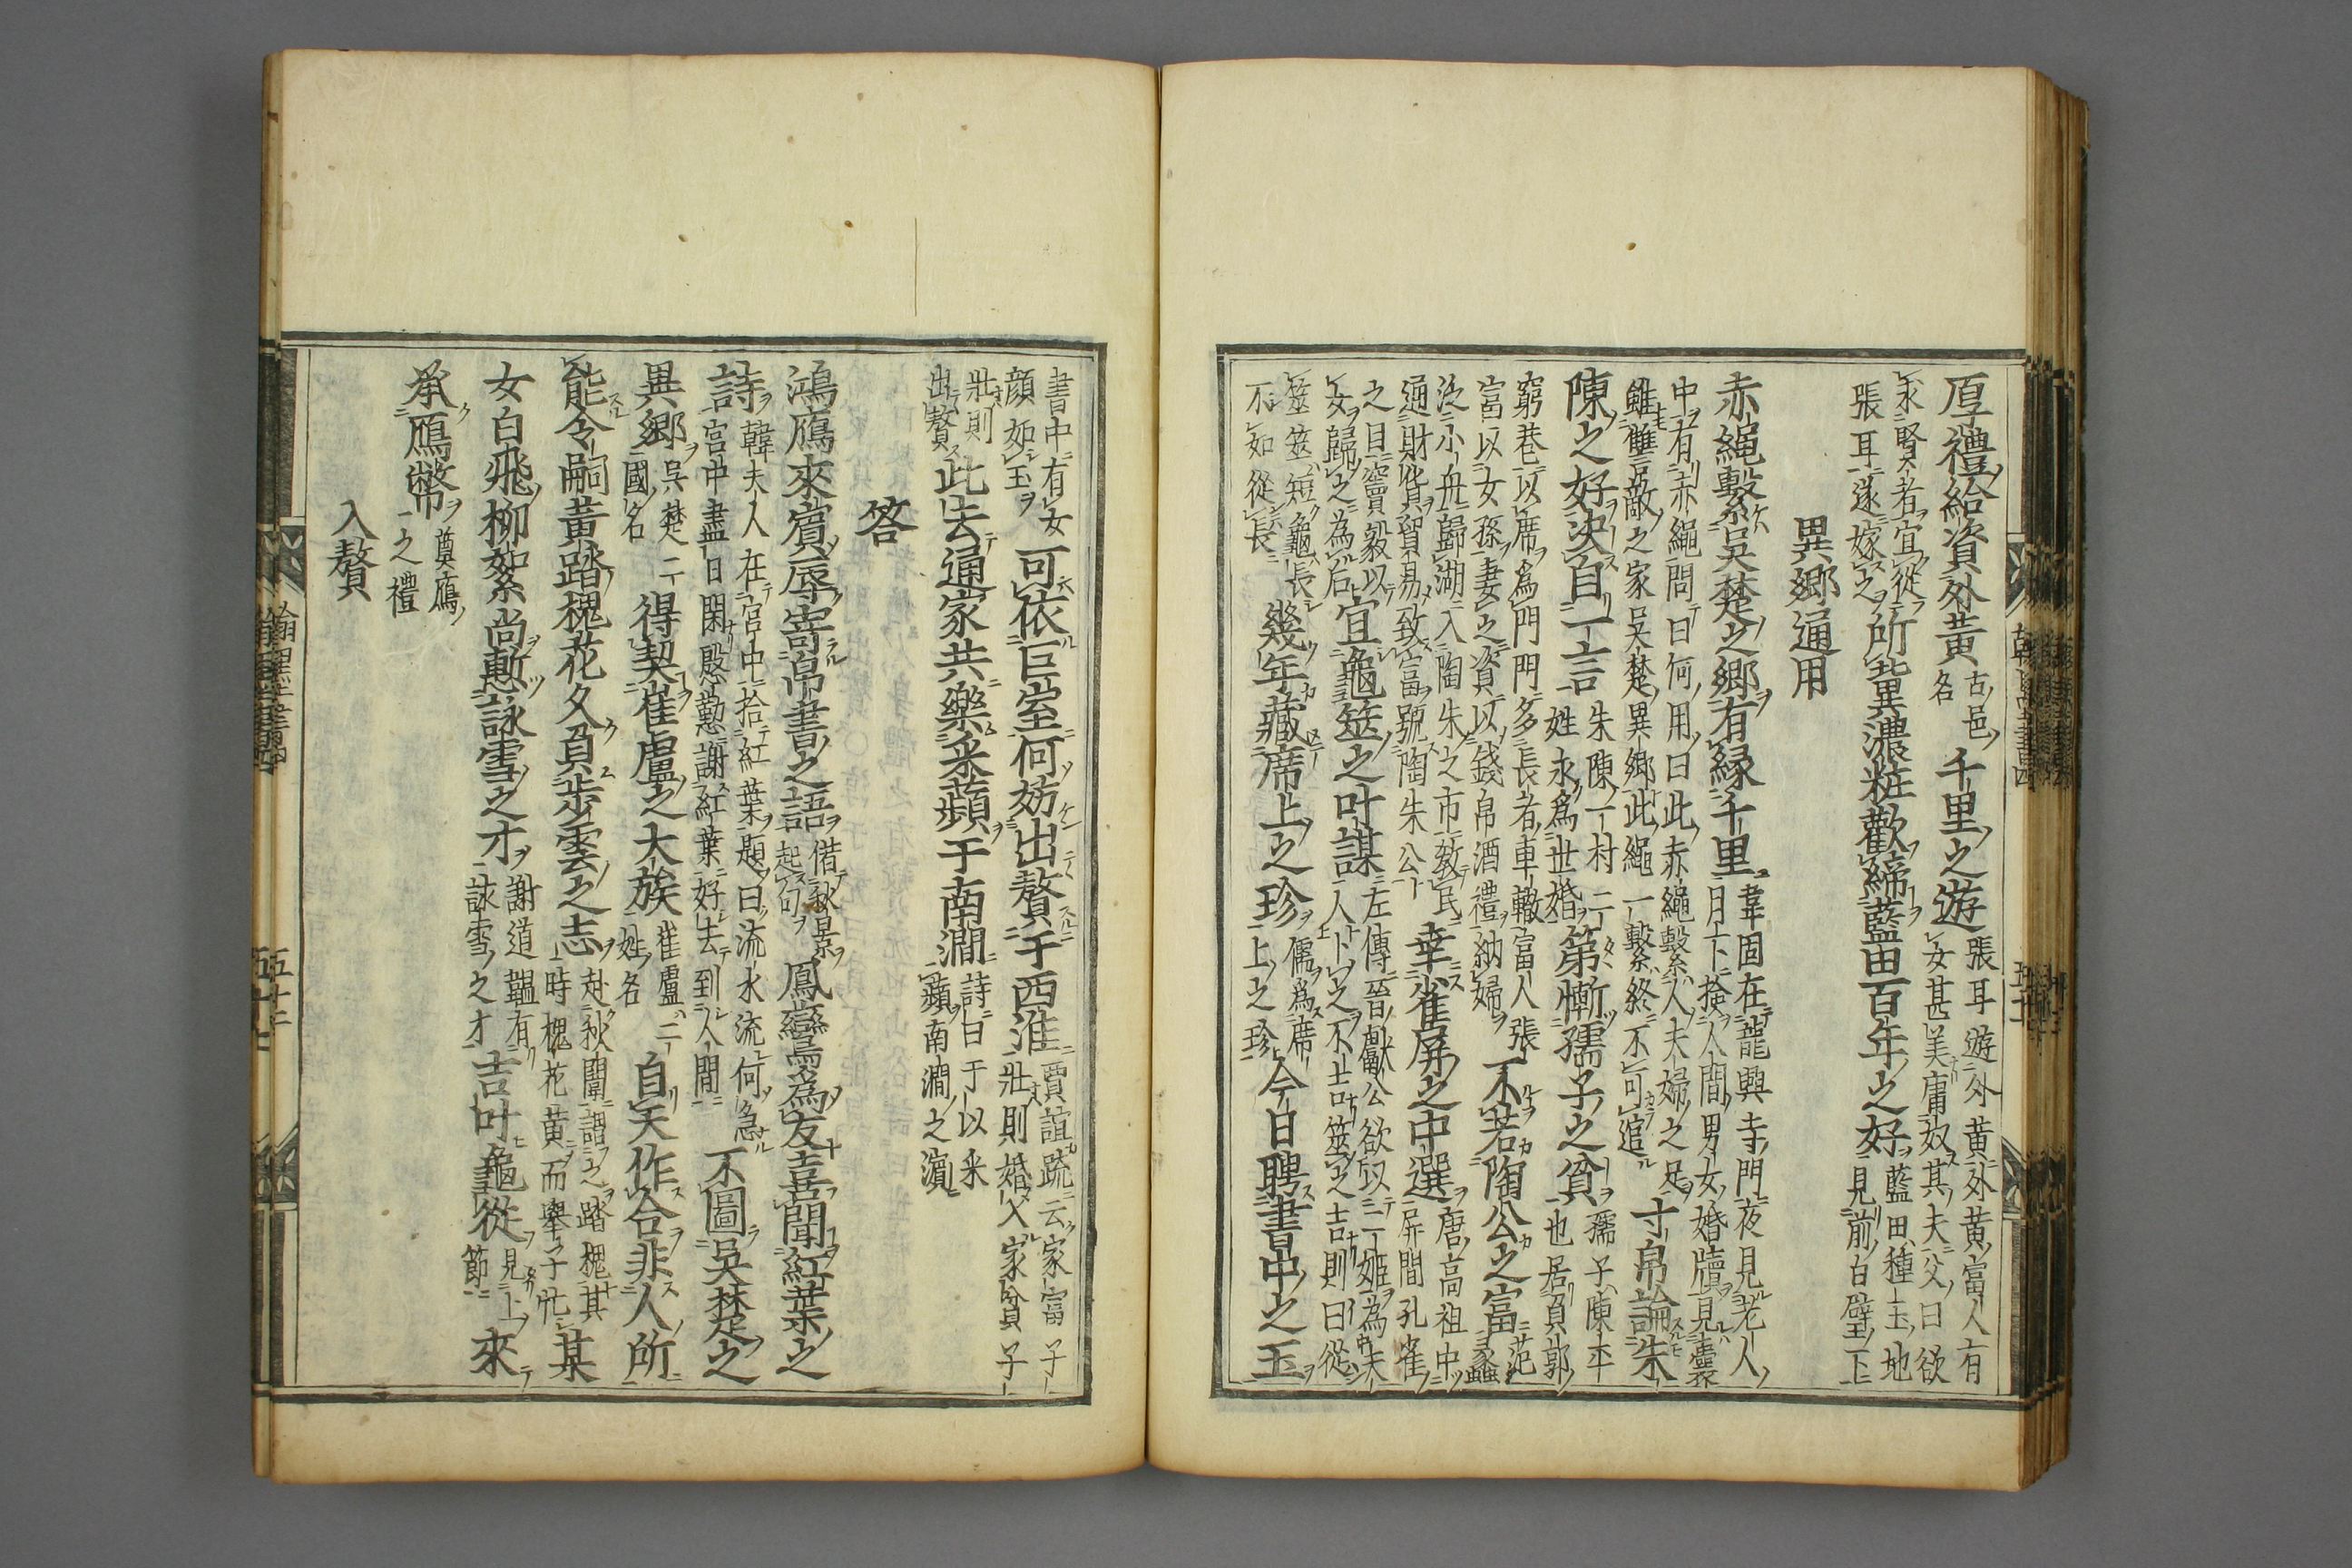 厚禮給資外黃古邑名千里之遊張耳遊外黃外黃富人有女甚美庸奴其夫父曰欲
求賢者宜從張耳遂嫁之所冀濃粧歡締藍田百年之好藍田種玉地見前白璧下
異鄉通用
赤繩繫吳楚之鄉有緣千里韋固在龍興寺門夜見老人月下撿人間男女婚牘見囊
中有赤繩問曰何用曰此赤繩繫人夫婦之足雖讎敵之家吳楚異鄉此繩一繫終不可逭寸帛論朱
陳之好決自一言朱陳一村二姓永為世婚第慚孺子之貧孺子陳平也居負郭
窮巷以席為門門多長者車轍富人張富以女孫妻之資以錢帛酒禮納婦不若陶公之富范蠡
泛小舟歸湖入陶朱之市教民通財貨貿易致富號陶朱公幸雀屏之中選唐高祖中屏間孔雀
之目竇毅以女歸之為后宜龜筮之叶謀左傳晉獻公欲以二姬為夫人卜之不吉筮之吉則曰從
筮筮短龜長不如從長幾年藏席上之珍儒為席上之珍今日聘書中之玉
書中有女顏如玉可依巨室何妨出贅于西淮賈誼疏云家富子壯則婚父家貧子
壯則出贅此去通家共樂采蘋于南澗詩曰于以采蘋南澗之濱
答
鴻鴈來賓辱寄帛書之語借秋景起句鳳鸞為友喜聞紅葉之
詩韓夫人在宮中拾紅葉題曰流水流何急宮中盡日閑殷懃謝紅葉好去到人間不圖吳楚之
異鄉吳楚二國名得契崔盧之大族崔盧二姓名自天作合非人所
能令嗣黃踏槐花久負步雲之志赴秋闈謂之踏槐其時槐花黃而舉子忙某
女白飛柳絮尚慙詠雪之才謝道韞有詠雪之才吉叶龜從見上節來
承鴈幣奠鴈之禮
入贅